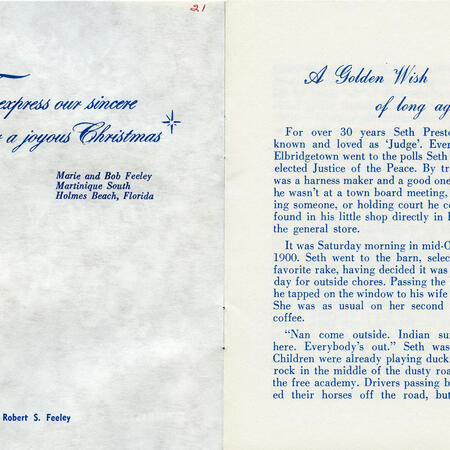 21
express our sincere
a joyous Christmas
Marie and Bob Feeley
Martinique South
Holmes Beach, Florida
Robert S. Feeley
A Golden Wish
of long ag
For over 30 years Seth Prest
known and loved as 'Judge'. Ever
Elbridgetown went to the polls Seth
elected Justice of the Peace. By tr
was a harness maker and a good one
he wasn't at a town board meeting,
ing someone, or holding court he co
found in his little shop directly in
the general store.
It was Saturday morning in mid-O
1900. Seth went to the barn, selec
favorite rake, having decided it was
day for outside chores. Passing the
he tapped on the window to his wife
She was as usual on her second
coffee.
"Nan come outside. Indian su
here. Everybody's out." Seth was
Children were already playing duck
rock in the middle of the dusty roa
the free academy. Drivers passing b
ed their horses off the road, but